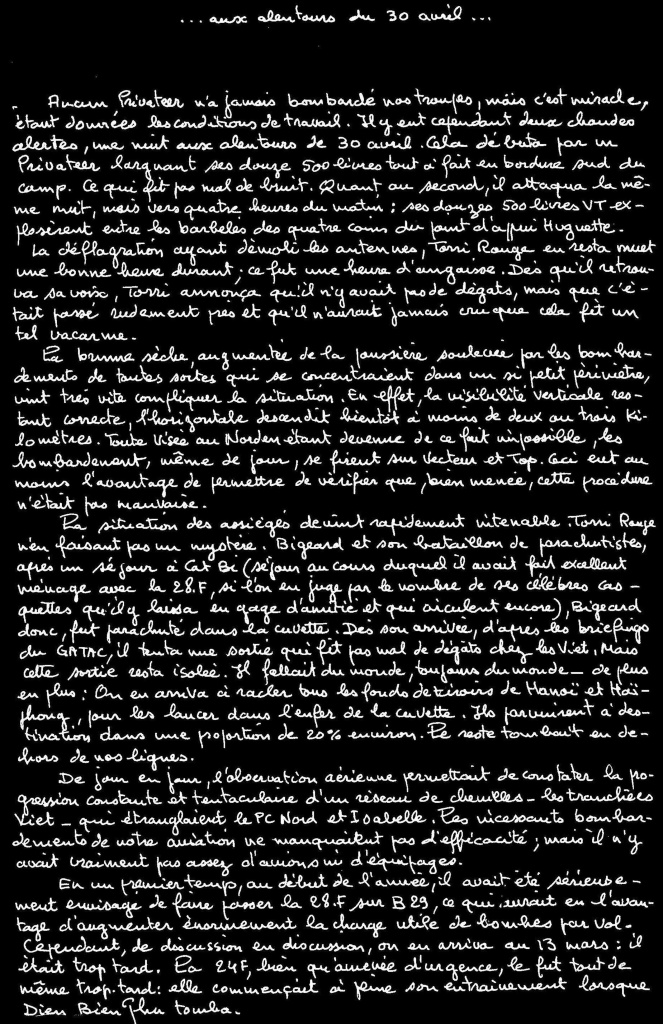 ... aux alentours du 30 avril ...
. Aucun Privateer n'a jamais bombardé nos troupes, mais c'est miracle,
étant données les conditions de travail. Il y eut cependant deux chaudes
alertes, une nuit aux alentours de 30 avril. Cela débuta par un
Privateer larguant ses douze 500 livres tout à fait en bordure sud du
camp. Ce qui fit pas mal de bruit. Quant au second, il attaqua la mê-
me nuit, mais vers quatre heures du matin ; ses douzes 500 livres VT ex-
plosèrent entre les barbelés des quatre coins du point d'appui Huguette.
La déflagration ayant démoli les antennes, Torri Rouge en resta muet
une bonne heure durant ; ce fut une heure d'angoisse. Dès qu'il retrou-
va sa voix, Torri annonça qu'il n'y avait pas de dégats, mais que c'é-
tait passé rudement près et qu'il n'aurait jamais cru que cela fît un
tel vacarme.
La brume sèche, augmentée de la poussière soulevée par les bombar-
dements de toutes sortes qui se concentraient dans un si petit périmètre,
vint très vite compliquer la situation. En effet, la visibilité verticale res-
tant correcte, l'horizontale descendit bientôt à moins de deux ou trois ki-
lomètres. Toute visée au Norden étant devenue de ce fait impossible, les
bombardement, même de jour, se firent sur Vecteur et Top. Ceci eut au
moins l'avantage de permettre de vérifier que, bien menée, cette procédure
n'était pas mauvaise.
La situation des assiégés devint rapidement intenable. Torri Rouge
n'en faisant pas un mystère. Bigeard et son bataillon de parachutistes,
après un séjour à Cat Bi (séjour au cours duquel il avait fait excellent
ménage avec la 28.F, si l'on en juge par le nombre de ses célèbres cas-
quettes qu'il y laissa en gage d'amitié et qui circulent encore), Bigeard
donc, fut parachuté dans la cuvette. Dès son arrivée, d'après les briefings
du GATAC, il tenta une sortie qui fit pas mal de dégats chez les Viet, Mais
cette sortie resta isolée. Il fallait du monde, toujours du monde _ de plus
en plus : On en arriva à racler tous les fonds de tiroirs de Hanoi et Haï-
phong, pour les lancer dans l'enfer de la cuvette. Ils parvinrent à des-
tination dans une poportion de 20% environ. Le reste tombait en de-
hors de nos lignes.
De jour en jour, l'observation aérienne permettait de constater la po-
gression constante et tentaculaire d'un réseau de chenilles _ les tranchées
Viet _ qui étranglaient le PC Nord et Isabelle. Les incessants bombar-
dements de notre aviation ne manquaient pas d'efficacité ; mais il n'y
avait vraiment pas assez d'avions ni d'équipages.
En un premier temps, au début de l'année, il avait été sérieuse-
ment envisagé de faire passer la 28.F sur B 29, ce qui aurait eu l'avan-
tage d'augmenter énormément la charge utile de bombes par vol.
Cependant, de discussion en discussion, on en arriva au 13 mars : il
était trop tard. La 24F, bien qu'amenée d'urgence, le fut tout de
même trop tard : elle commençait à peine son entraînement lorsque
Dien Bien Phu tomba.